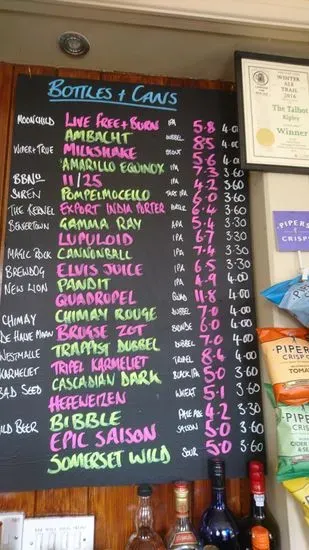 BOTTLES + CANS
MOONCHILD LIVE FREE + BURN IPA 5.8 4.00
AMBACHT DUBBEL 8.5 4.00
WIPER + TRUE MILKSHAKE STOUT 5.6 4.00
AMARILLO EQUINOX IPA 7.3 4.20
BBNO 11/25 3.60
SIREN POMPELMOCELLO IPA 6.0 3.60
THE KERNEL EXPORT INDIA PORTER 6.4 3.60
BEAVERTOWN GAMMA RAY APA 5.4 3.30
LUPULOID IPA 6.7 3.30
MAGIC ROCK CANNONBALL IPA 7.4 3.30
BREWDOG ELVIS JUICE IPA 6.5
NEW LION PANDIT IPA 4.9 4.00
QUADRUPEL QUAD 11.8 4.00
CHIMAY CHIMAY ROUGE DUBBEL 7.0 3.90
DE HALVE MAAN BRUGSE ZOT BLONDE 6.0
WESTMALLE TRAPPIST DUBBEL DUBBEL 7.0 4.00
KARMELIET TRIPEL KARMELIET TRIPEL 8.4 4.00
BAD SEED CASCADIAN DARK BLACK IPA 5.0
HEFEWEIZEN WHEAT 5.1
WILD BEER BIBBLE PALE ALE 4.2 3.30
EPIC SAISON SAISON 5.0 3.60
SOMERSET WILD SOUR 5.0 3.60
WINTER ALE
TRAIL 2016
The Talbot
Ripley
Winner
PIPERS
CRISPS
PIPERS
PIPERS
CRISP
TOMA
PIPERS
CRISP
CIDER